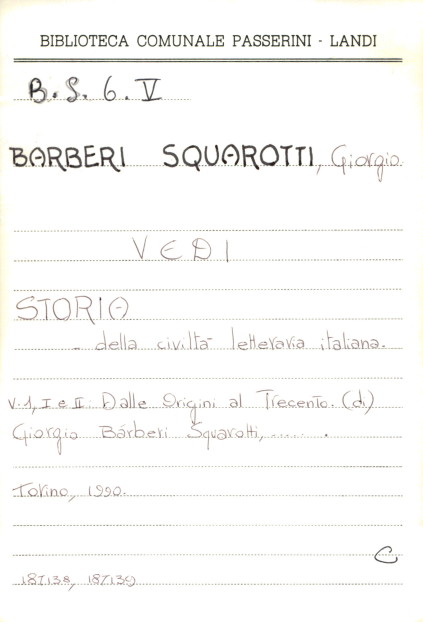 BIBLIOTECA COMUNALE PASSERINI - LANDI
B. S. 6. V
BARBERI SQUAROTTI, Giorgio
VEDI
STORIA
della civiltà letteraria italiana.
V. 1, I e II: Dalle Origini al Trecento. (di)
Giorgio Bárberi Squarotti, ...... .
Torino, 1990.
C
187138, 187139